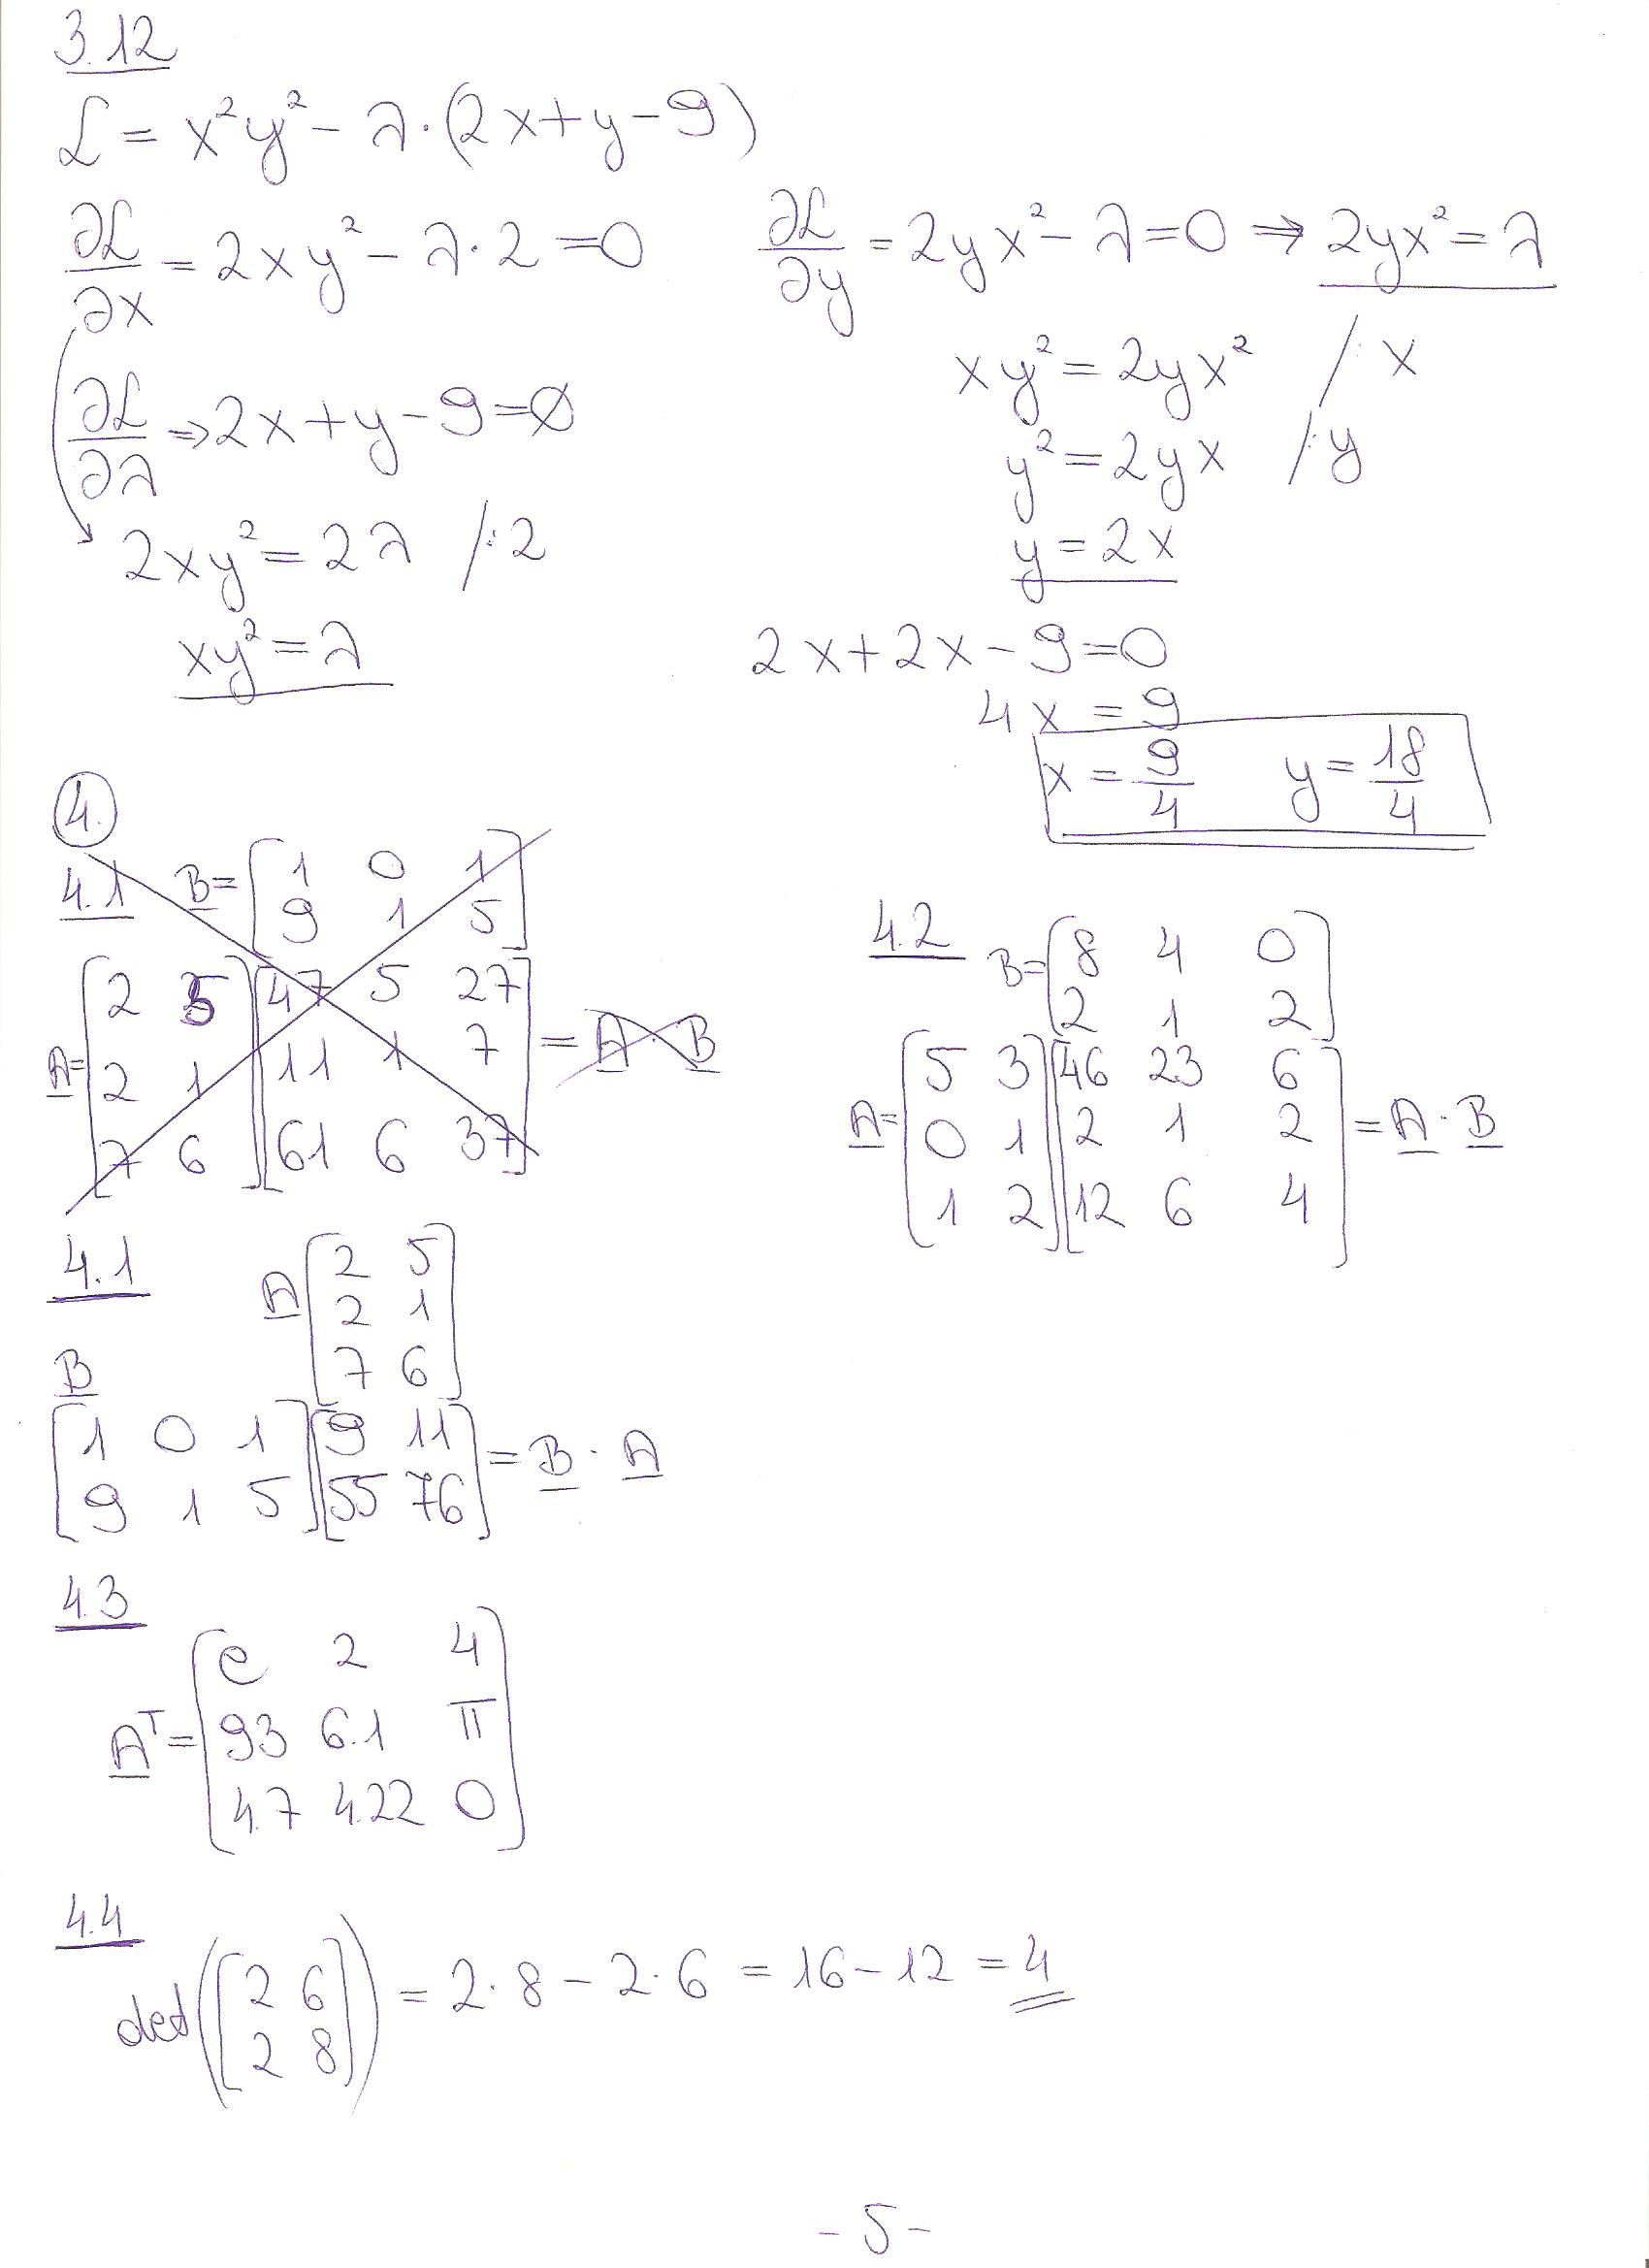 3.12
ℒ = x²y² - λ·(2x+y-9)
∂ℒ/∂x = 2xy² - λ·2 = 0
∂ℒ/∂λ ⇒ 2x+y-9=0
2xy² = 2λ /:2
xy² = λ
∂ℒ/∂y = 2yx² - λ = 0 ⇒ 2yx² = λ
xy² = 2yx² /:x
y² = 2yx /:y
y = 2x
2x+2x-9=0
4x = 9
x = 9/4 y = 18/4
4.
4.1 B = [1 0 1
9 1 5]
A = [2 5 [47 5 27
2 1 11 1 7 = A·B
7 6] 61 6 37]
4.2 B = [8 4 0
2 1 2]
A = [5 3 [46 23 6
0 1 2 1 2 = A·B
1 2] 12 6 4]
4.1
A [2 5
2 1
7 6]
B
[1 0 1 [9 11
9 1 5] 55 76] = B·A
4.3
Aᵀ = [e 2 4
93 6.1 π
4.7 4.22 0]
4.4
det([2 6
2 8]) = 2·8 - 2·6 = 16-12 = 4
-5-